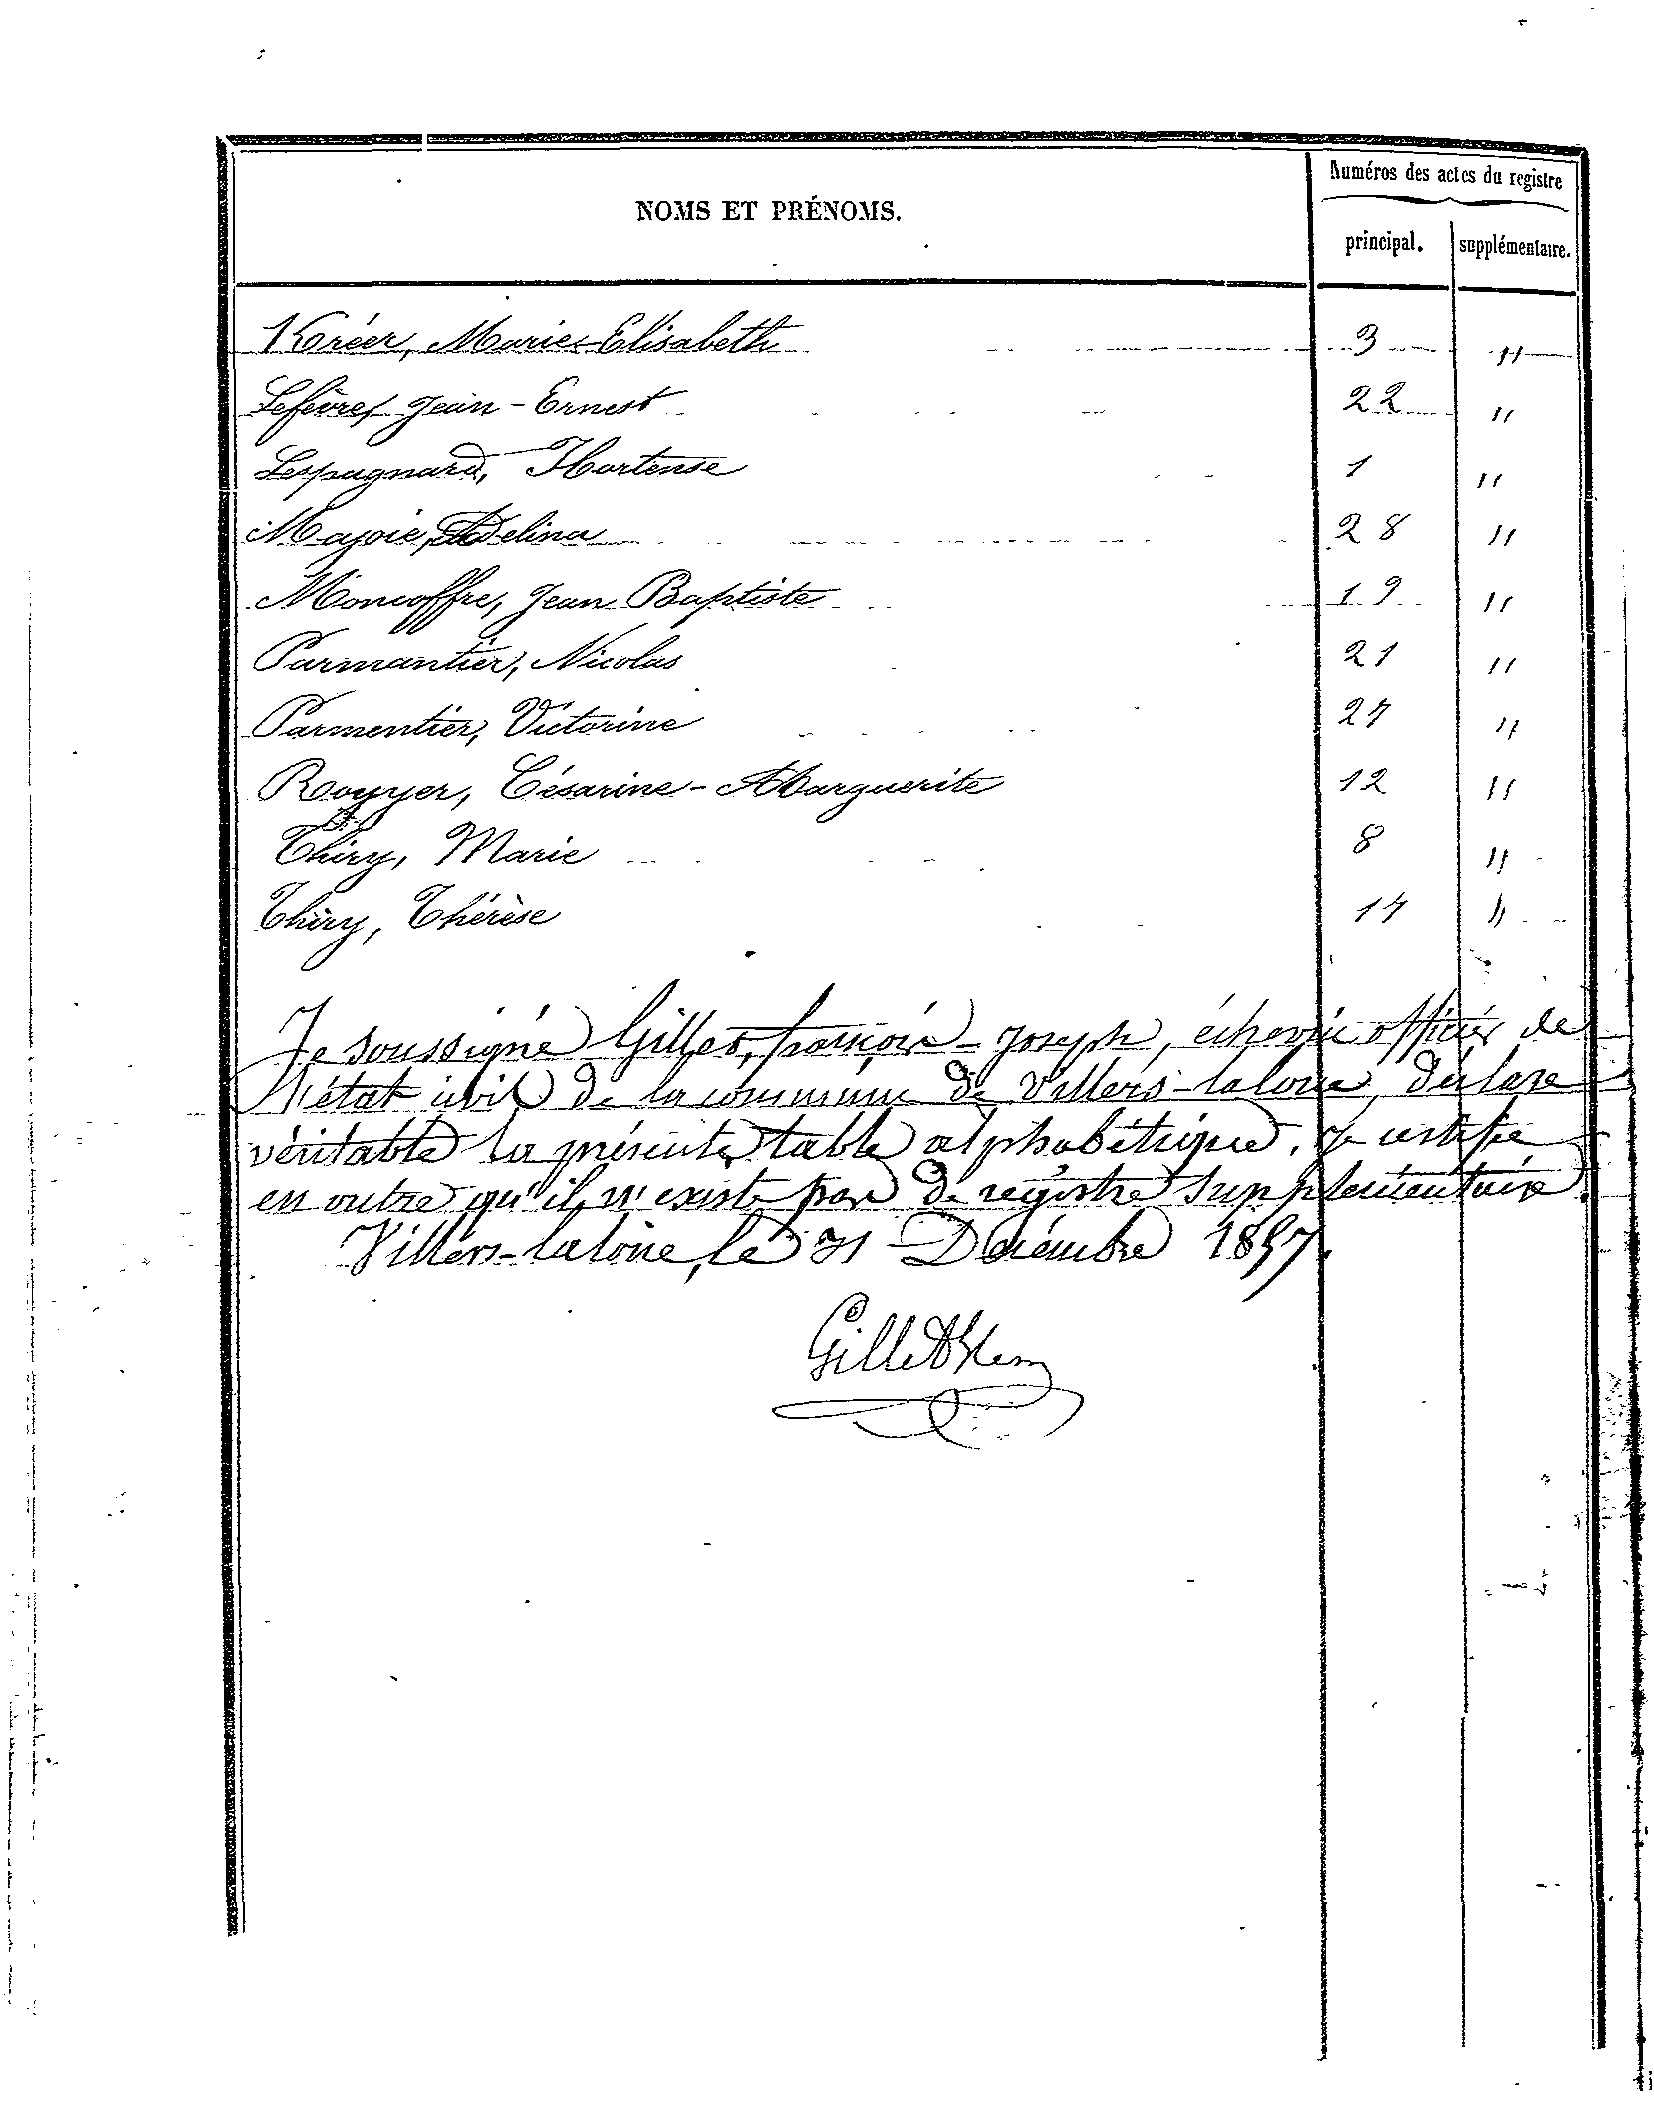 NOMS ET PRÉNOMS.
Numéros des actes du registre
principal. supplémentaire.
Kréer, Marie-Elisabeth 3 "
Lefèvre, Jean-Ernest 22 "
Lespagnard, Hortense 1 "
Majoie, Adelina 28 "
Moncoffre, Jean Baptiste 19 "
Parmantier, Nicolas 21 "
Parmentier, Victorine 27 "
Royyer, Césarine-Marguerite 12 "
Thiry, Marie 8 "
Thiry, Thérèse 17 "
Je soussigné Gilles, françois-Joseph, échevin officier de
l'état civil de la commune de Villers-la loue, déclare
véritable la présente table alphabétique. Je certifie
en outre qu'il n'existe pas de registre supplémentaire.
Villers-la loue, le 31 Décembre 1897.